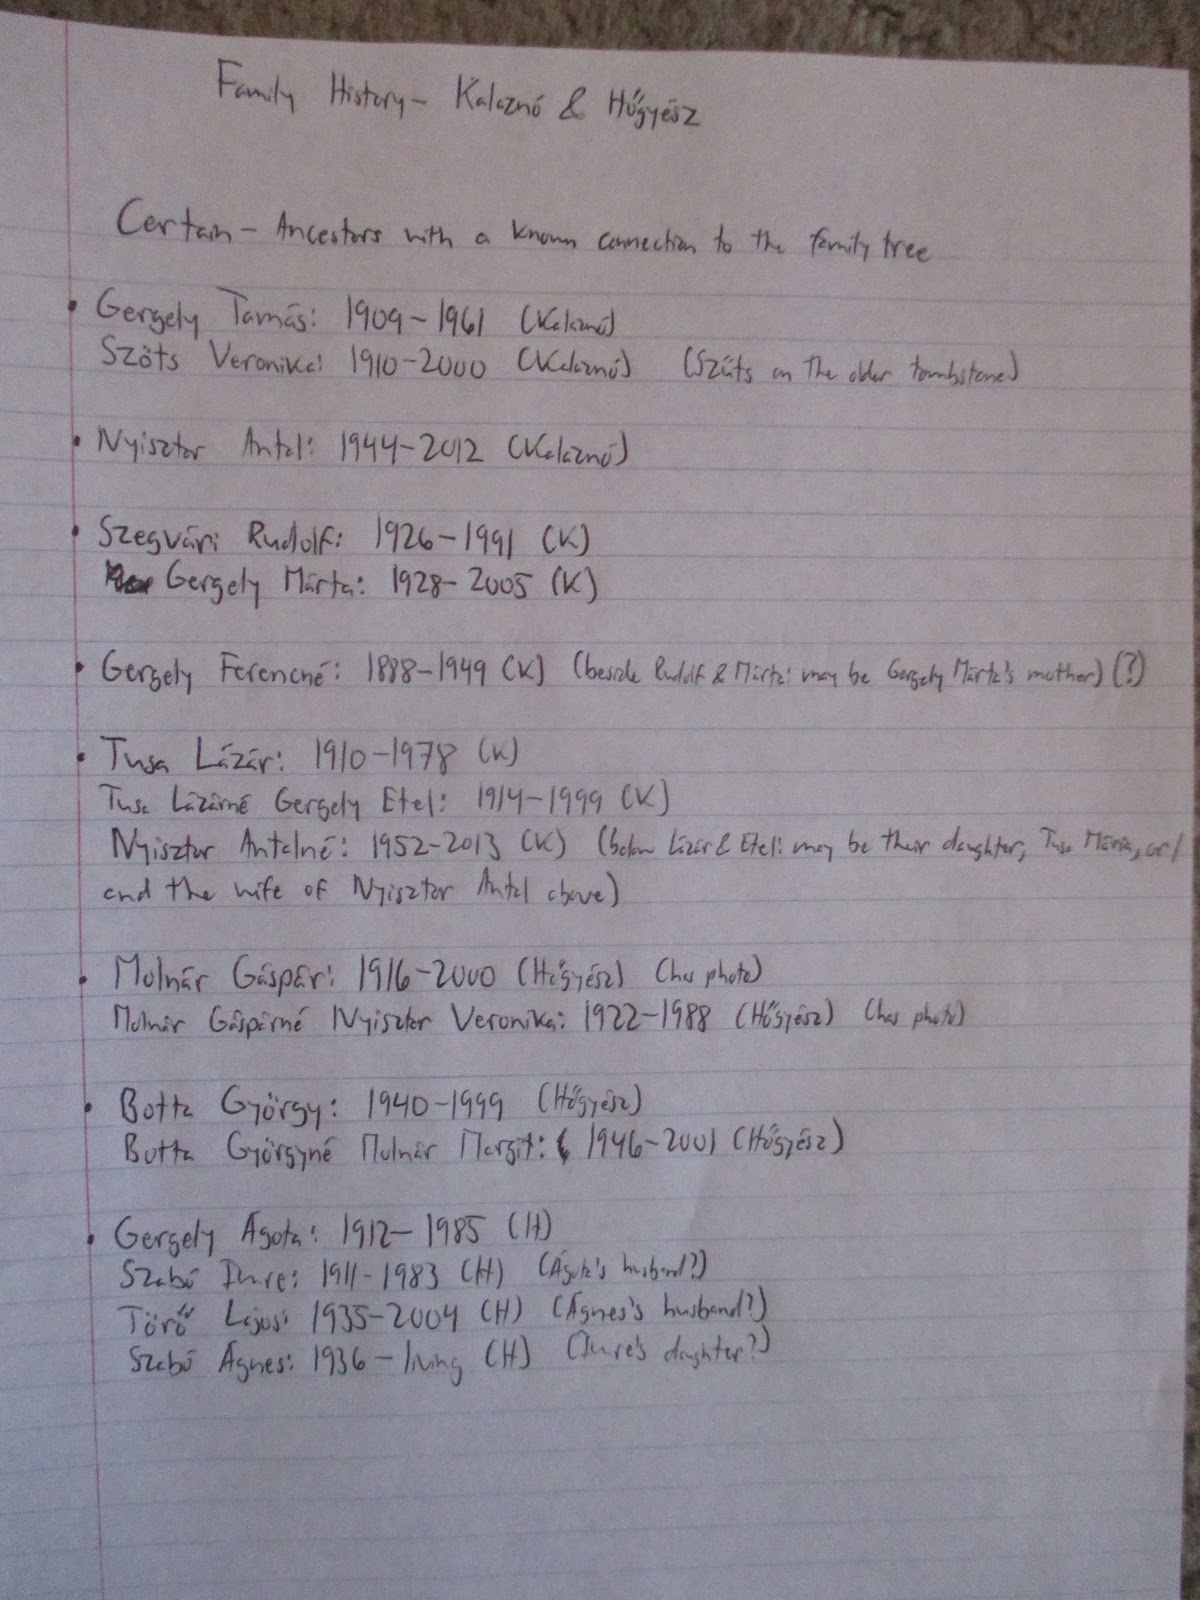 Family History – Kalaznó & Hőgyész
Certain – Ancestors with a known connection to the family tree
• Gergely Tamás: 1909–1961 (Kalaznó)
Szőts Veronika: 1910–2000 (Kalaznó) (Szűts on the older tombstone)
• Nyisztor Antal: 1944–2012 (Kalaznó)
• Szegvári Rudolf: 1926–1991 (K)
Gergely Márta: 1928–2005 (K)
• Gergely Ferencné: 1888–1949 (K) (beside Rudolf & Márta: may be Gergely Márta's mother) (?)
• Tusa Lázár: 1910–1978 (K)
Tusa Lázárné Gergely Etel: 1914–1999 (K)
Nyisztor Antalné: 1952–2013 (K) (below Lázár & Etel: may be their daughter, Tusa Mária, or/
and the wife of Nyisztor Antal above)
• Molnár Gáspár: 1916–2000 (Hőgyész) (has photo)
Molnár Gáspárné Nyisztor Veronika: 1922–1988 (Hőgyész) (has photo)
• Botta György: 1940–1999 (Hőgyész)
Botta Györgyné Molnár Margit: 1946–2001 (Hőgyész)
• Gergely Ágota: 1912–1985 (H)
Szabó Imre: 1911–1983 (H) (Ágota's husband?)
Törő Lajos: 1935–2004 (H) (Ágnes's husband?)
Szabó Ágnes: 1936–living (H) (Imre's daughter?)